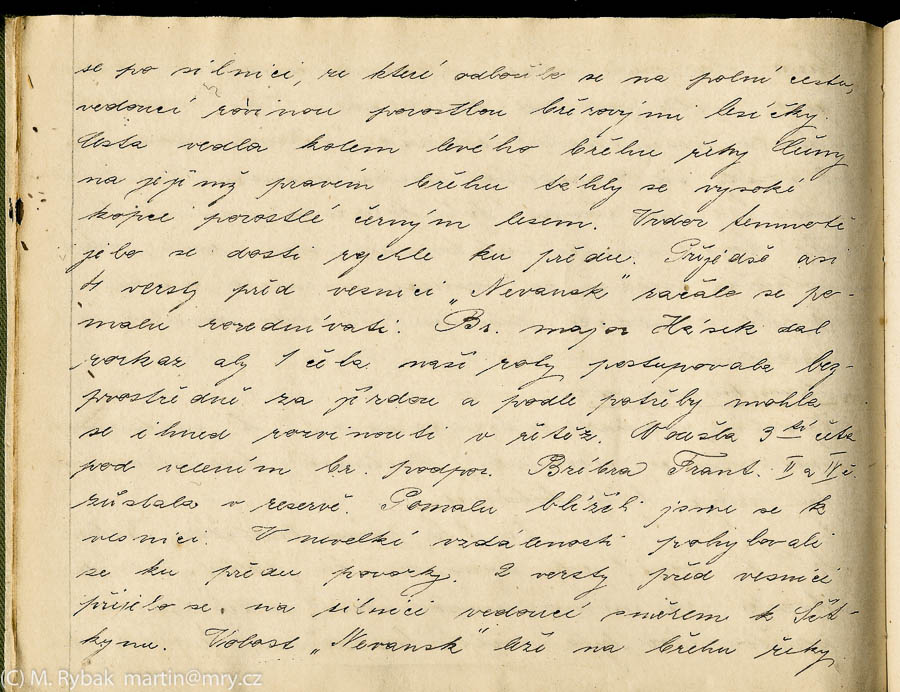 se po silnici, ze které odbočilo se na polní cestu,
vedoucí rovinou porostlou březovými lesíčky.
Cesta vedla kolem levého břehu řeky Čuny
na jejímž pravém břehu táhly se vysoké
kopce porostlé černým lesem. Vzdor temnotě
jelo se dosti rychle ku předu. Přijedše asi
4 versty před vesnici „Nevansk" začalo se po-
malu rozednívati. Br. major Hásek dal
rozkaz aby 1 četa naší roty postupovala bez-
prostředně za jízdou a podle potřeby mohla
se ihned rozvinouti v řetěz. Odešla 3tí četa
pod velením br. podpor. Bríbra Frant. II a IV č.
zůstala v reservě. Pomalu blížili jsme se k
vesnici. V nevelké vzdálenosti pohybovali
se ku předu povozky. 2 versty před vesnicí
přišlo se na silnici vedoucí směrem k Šit-
kynu. Volost „Nevansk" leží na břehu řeky
(C) M. Rybak martin@mry.cz